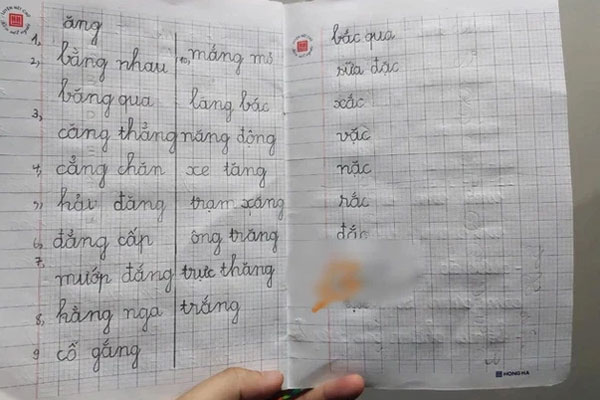 ăng
1,
2, bằng nhau
10, mắng mỏ
băng qua
lăng bác
3,
căng thẳng
năng động
4, cẳng chân
xe tăng
5, hải đăng
trạm xăng
6, đẳng cấp
ông trăng
7,
mướp đắng
trực thăng
8, hằng nga
trắng
9 cố gắng
bắc qua
sữa đặc
xắc
vặc
nặc
rắc
đắc
HONG HA